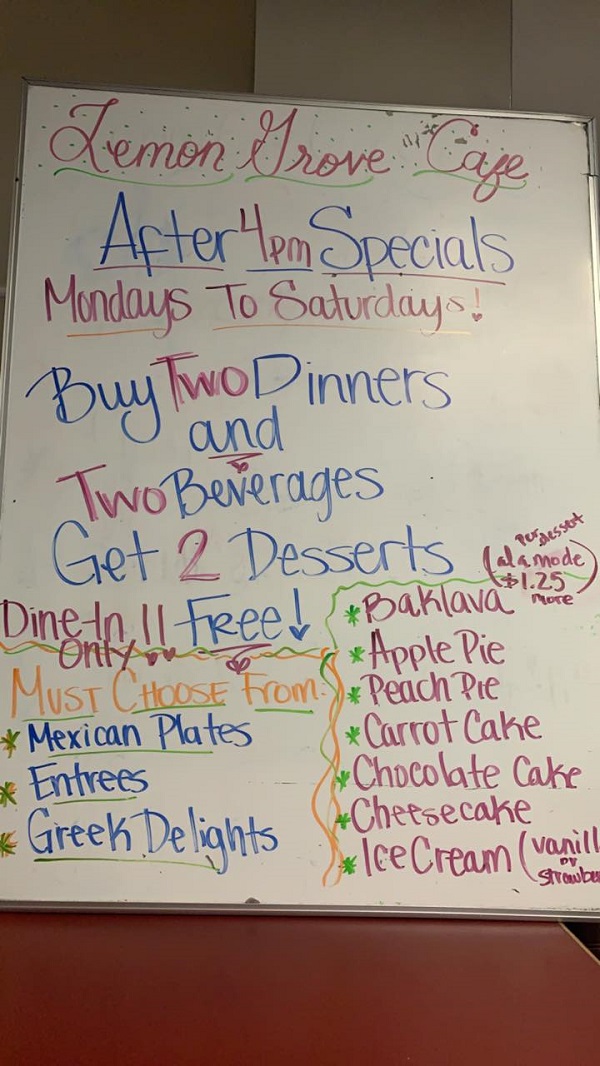 Lemon Grove Cafe
After 4pm Specials
Mondays To Saturdays!
Buy Two Dinners
and
Two Beverages
Get 2 Desserts
Free!
Dine-In
Only
(per dessert
a la mode
$1.25
more)
Must Choose From:
* Mexican Plates
* Entrees
* Greek Delights
* Baklava
* Apple Pie
* Peach Pie
* Carrot Cake
* Chocolate Cake
* Cheesecake
* Ice Cream (vanill
or
strawbe